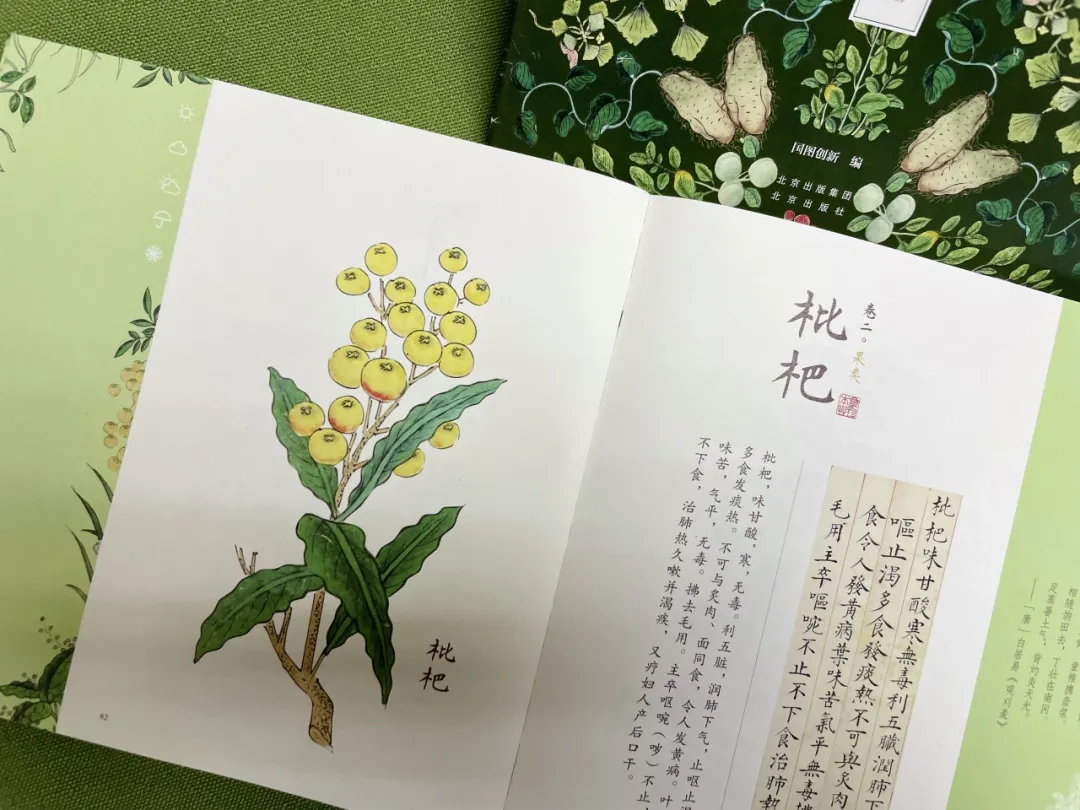 国图创新 编
北京出版集团
北京出版社
枇杷
82
卷二。果类
枇杷
枇杷，味甘酸，寒，无毒。利五脏，润肺下气，止呕止渴
多食发痰热。不可与炙肉、面同食，令人发黄病。叶
味苦，气平，无毒。拂去毛用。主卒呕啘（哕）不止，
不下食，治肺热久嗽并渴疾，又疗妇人产后口干。
枇杷味甘酸寒無毒利五臟潤肺下
嘔止渴多食發痰熱不可與炙肉
食令人發黄病葉味苦氣平無毒
毛用主卒嘔啘不止不下食治肺熱
相随饷田去，丁壮在南冈。
足蒸暑土气，背灼炎天光。
——［唐］白居易《观刈麦》